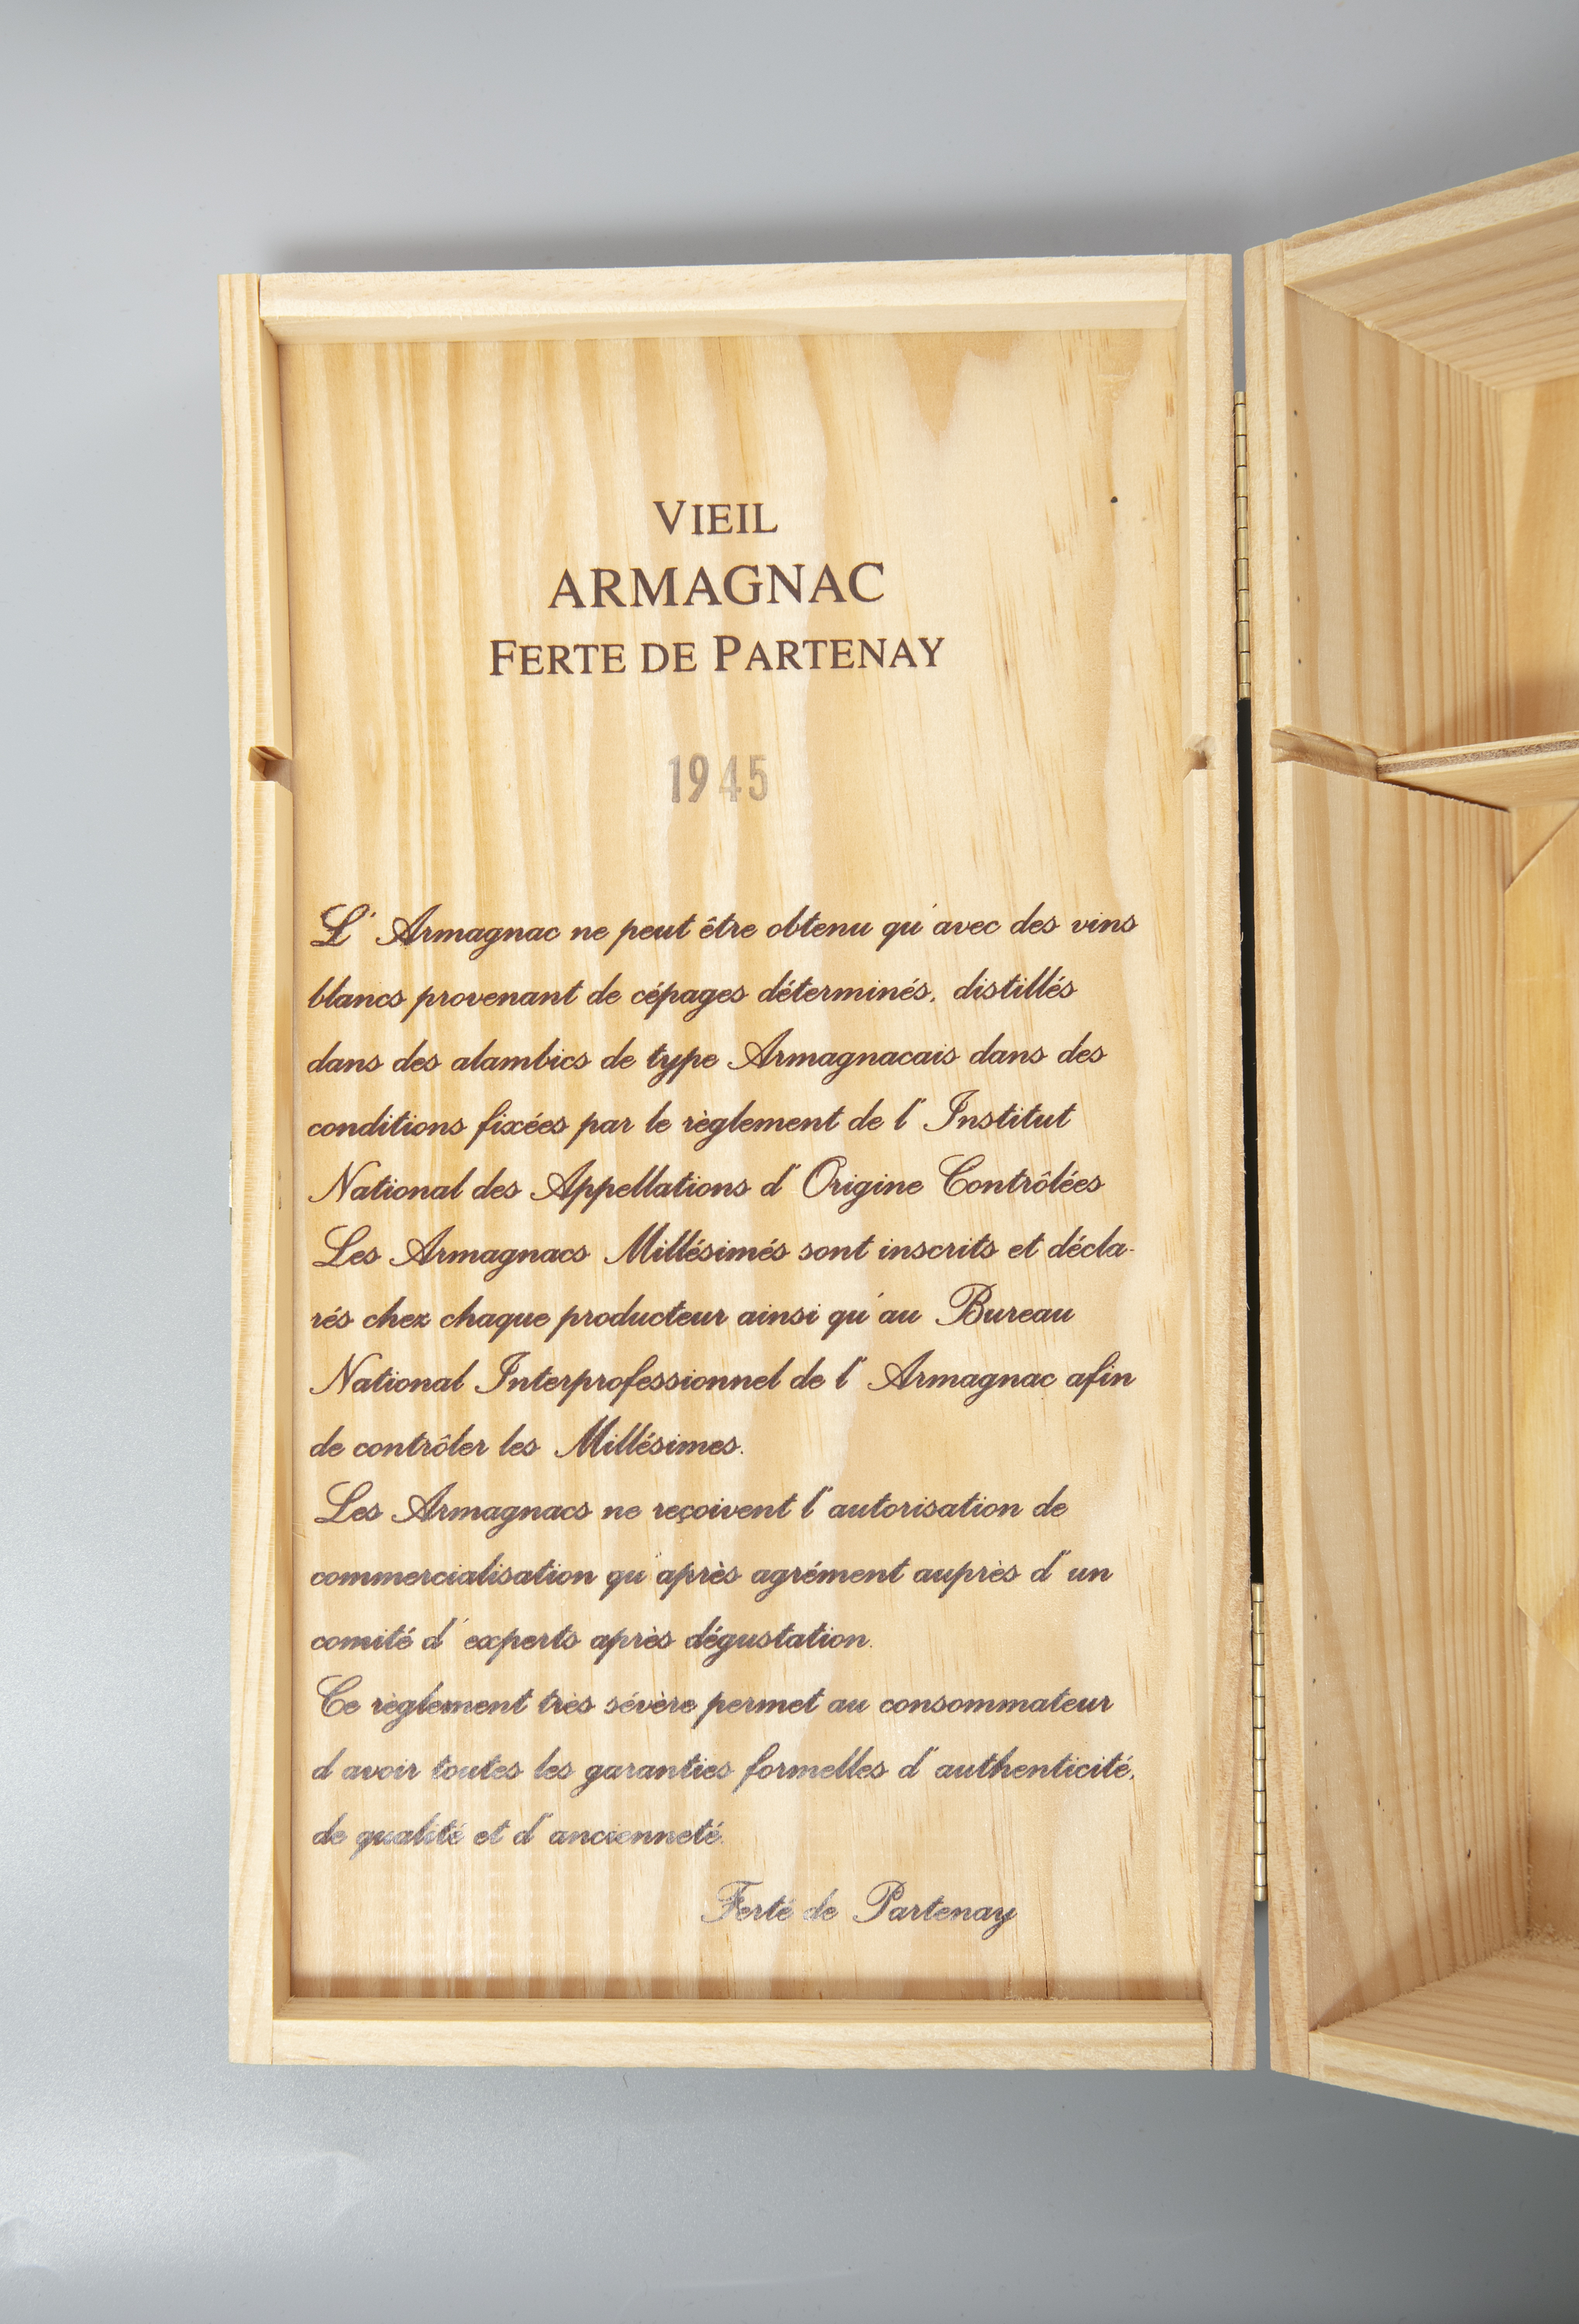 VIEIL
ARMAGNAC
FERTE DE PARTENAY
1945
L' Armagnac ne peut être obtenu qu'avec des vins
blancs provenant de cépages déterminés, distillés
dans des alambics de type Armagnacais dans des
conditions fixées par le règlement de l' Institut
National des Appellations d' Origine Contrôlées
Les Armagnacs Millésimés sont inscrits et décla-
rés chez chaque producteur ainsi qu'au Bureau
National Interprofessionnel de l' Armagnac afin
de contrôler les Millésimes.
Les Armagnacs ne reçoivent l'autorisation de
commercialisation qu'après agrément auprès d'un
comité d' experts après dégustation.
Ce règlement très sévère permet au consommateur
d'avoir toutes les garanties formelles d'authenticité,
de qualité et d'ancienneté.
Ferté de Partenay